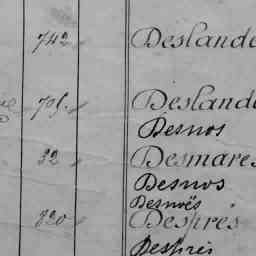 742 Deslande
705 Deslande
Desnos
32 Desmares
Desnos
Desnoës
320 Després
Després